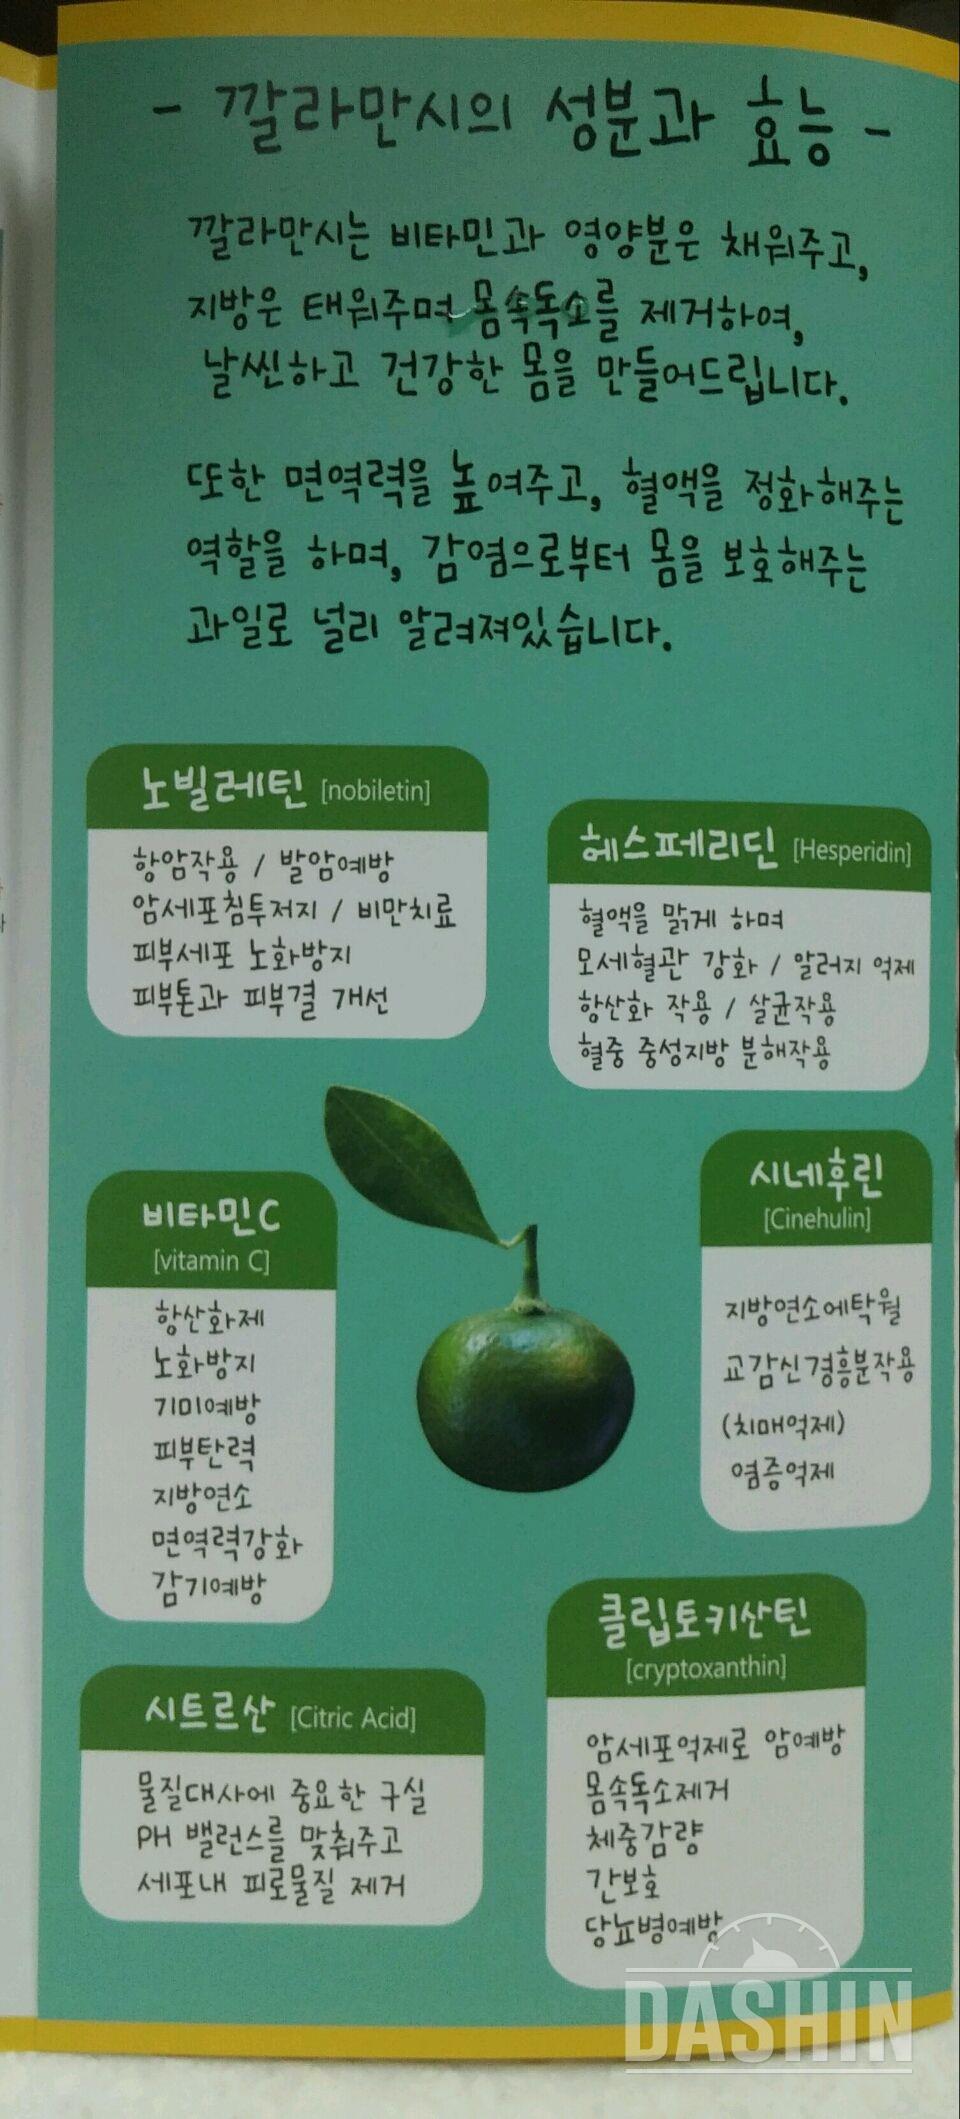 - 깔라만시의 성분과 효능 -
깔라만시는 비타민과 영양분은 채워주고,
지방은 태워주며 몸속독소를 제거하여,
날씬하고 건강한 몸을 만들어드립니다.
또한 면역력을 높여주고, 혈액을 정화해주는
역할을 하며, 감염으로부터 몸을 보호해주는
과일로 널리 알려져있습니다.
노빌레틴 [nobiletin]
항암작용 / 발암예방
암세포침투저지 / 비만치료
피부세포 노화방지
피부톤과 피부결 개선
헤스페리딘 [Hesperidin]
혈액을 맑게 하며
모세혈관 강화 / 알러지 억제
항산화 작용 / 살균작용
혈중 중성지방 분해작용
비타민C
[vitamin C]
항산화제
노화방지
기미예방
피부탄력
지방연소
면역력강화
감기예방
시네후린
[Cinehulin]
지방연소에탁월
교감신경흥분작용
(치매억제)
염증억제
시트르산 [Citric Acid]
물질대사에 중요한 구실
PH 밸런스를 맞춰주고
세포내 피로물질 제거
클립토키산틴
[cryptoxanthin]
암세포억제로 암예방
몸속독소제거
체중감량
간보호
당뇨병예방
DASHIN